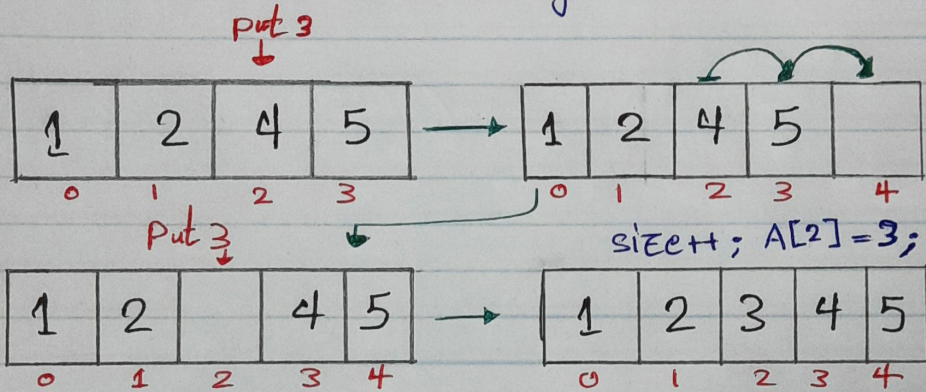 Put 3
1 2 4 5
0 1 2 3
1 2 4 5
0 1 2 3 4
Put 3
size++; A[2]=3;
1 2 4 5
0 1 2 3 4
1 2 3 4 5
0 1 2 3 4